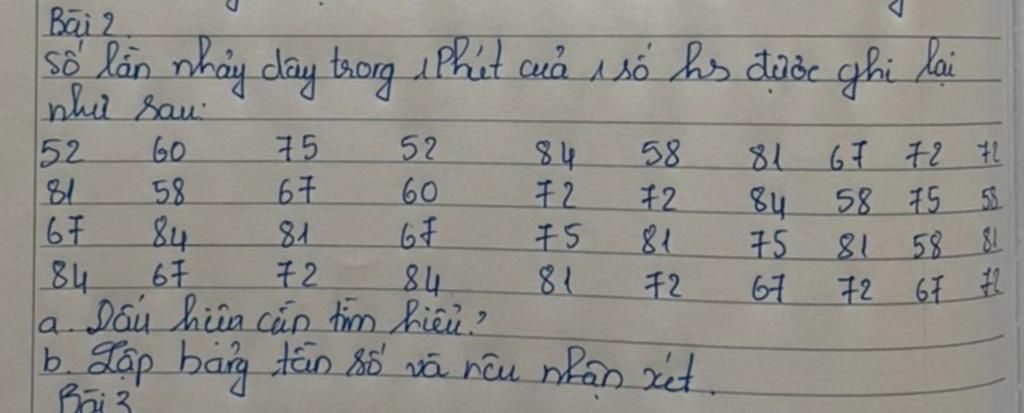 Bài 2.
Số lần nhảy dây trong 1 Phút của 1 số hs được ghi lại
như sau:
52 60 75 52 84 58 81 67 72 72
81 58 67 60 72 72 84 58 75 58
67 84 81 67 75 81 75 81 58 81
84 67 72 84 81 72 67 72 67 72
a. Dấu hiệu cần tìm hiểu?
b. Lập bảng tần số và nêu nhận xét.
Bài 3